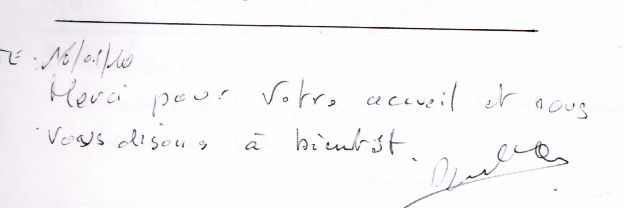 Merci pour votre accueil et nous
vous disons à bientôt.